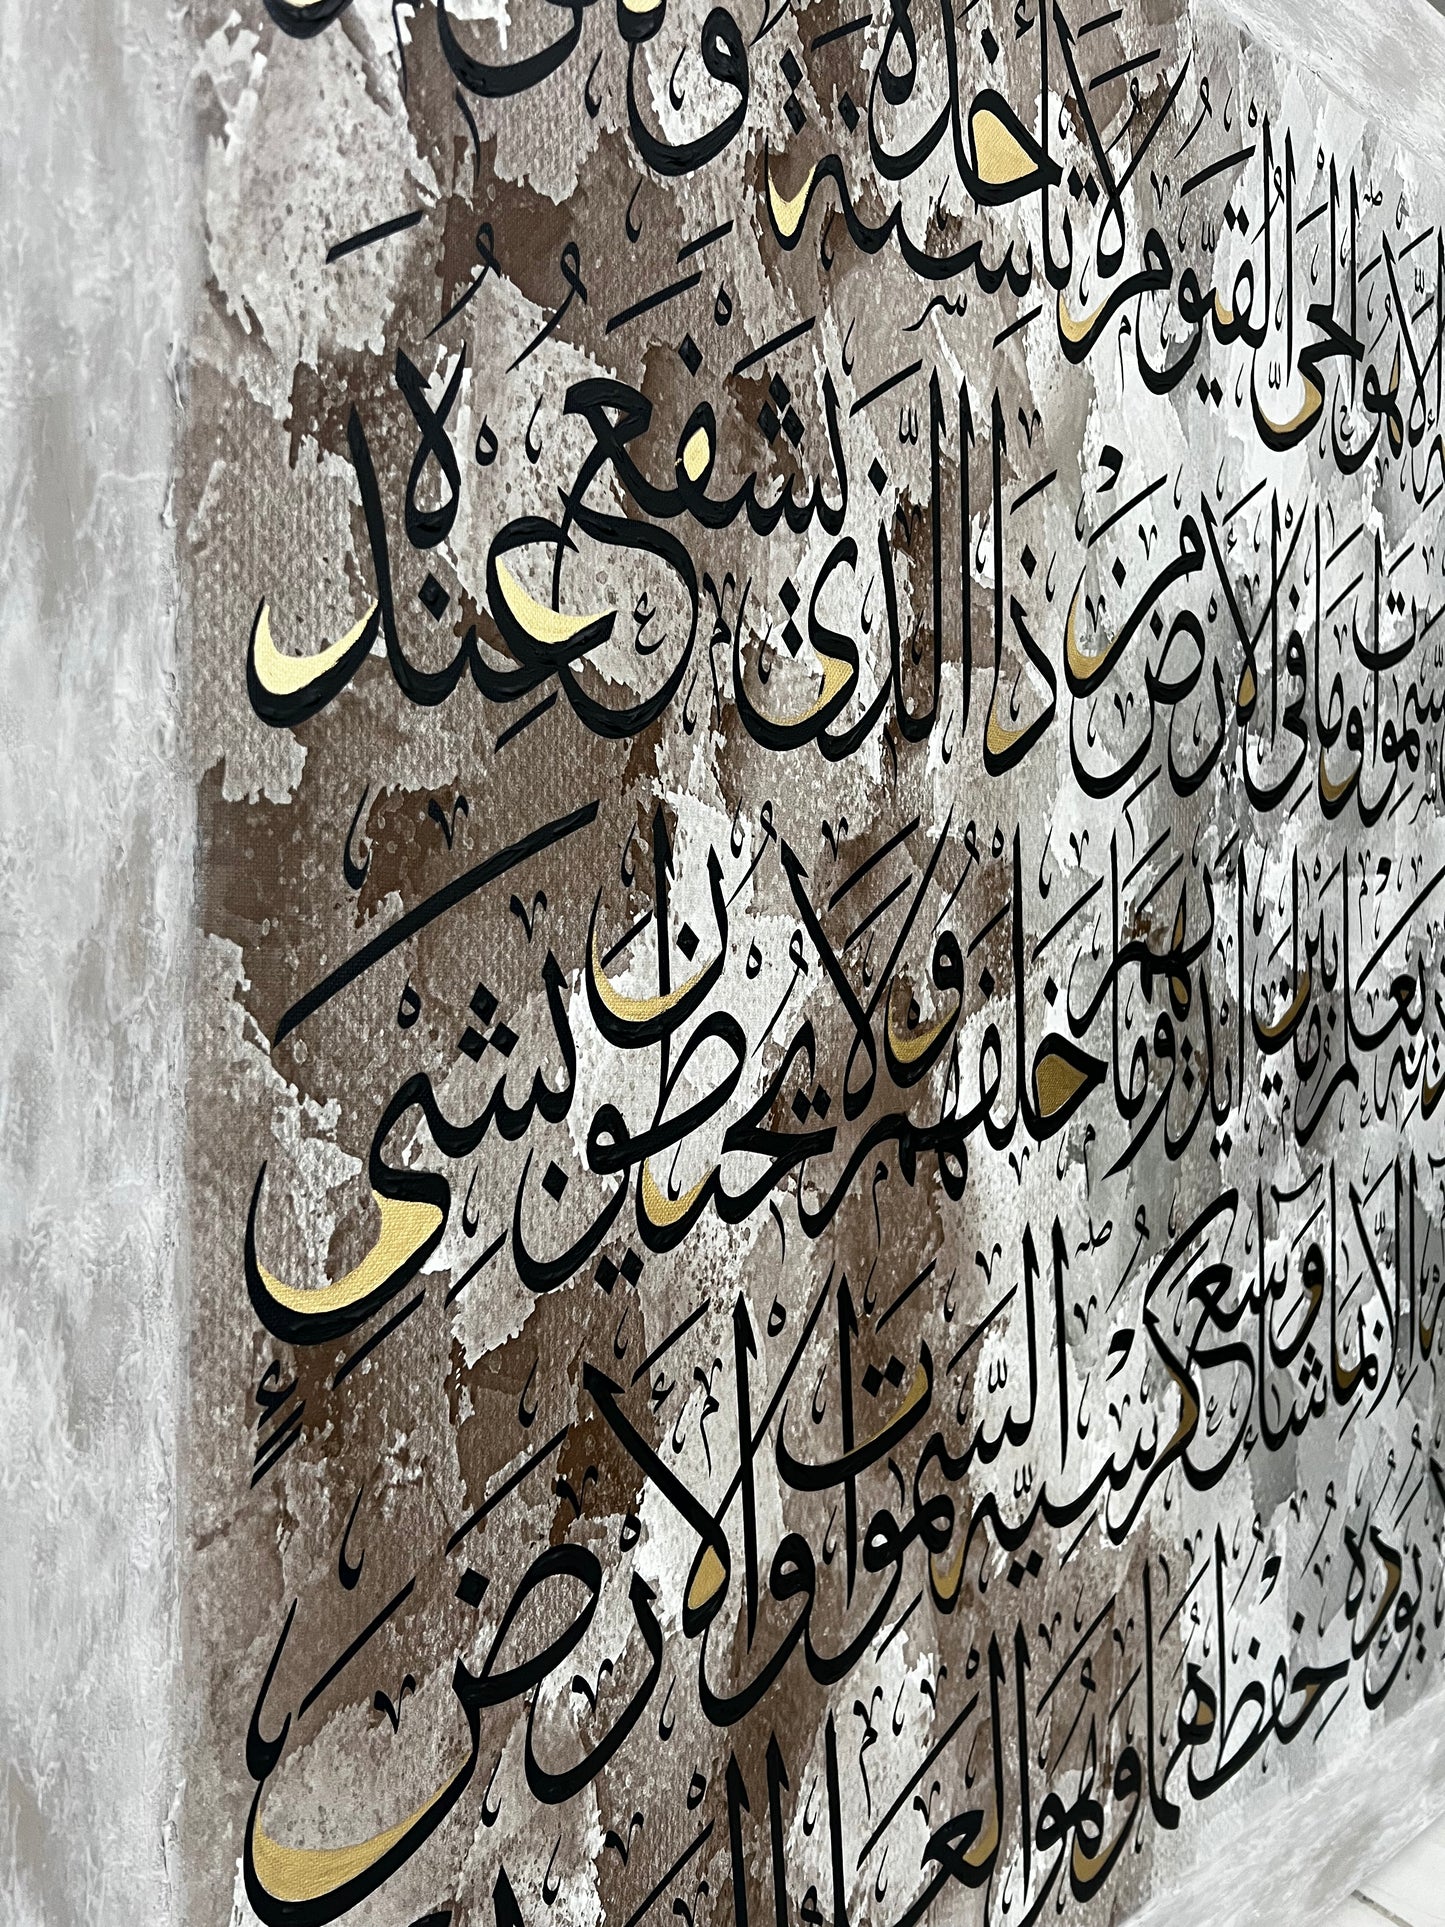 إِلَّا هُوَ الْحَيُّ الْقَيُّومُ لَا تَأْخُذُهُ سِنَةٌ وَ
السَّمٰوَاتِ وَمَا فِي الْأَرْضِ مَنْ ذَا الَّذِي يَشْفَعُ عِنْدَهُ
يَعْلَمُ مَا بَيْنَ أَيْدِيهِمْ وَمَا خَلْفَهُمْ وَلَا يُحِيطُونَ بِشَيْءٍ
إِلَّا بِمَا شَاءَ وَسِعَ كُرْسِيُّهُ السَّمٰوَاتِ وَالْأَرْضَ
يَئُودُهُ حِفْظُهُمَا وَهُوَ